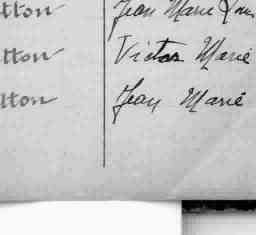 tton Jean Marie Louis
tton Victor Marie
tton Jean Marie